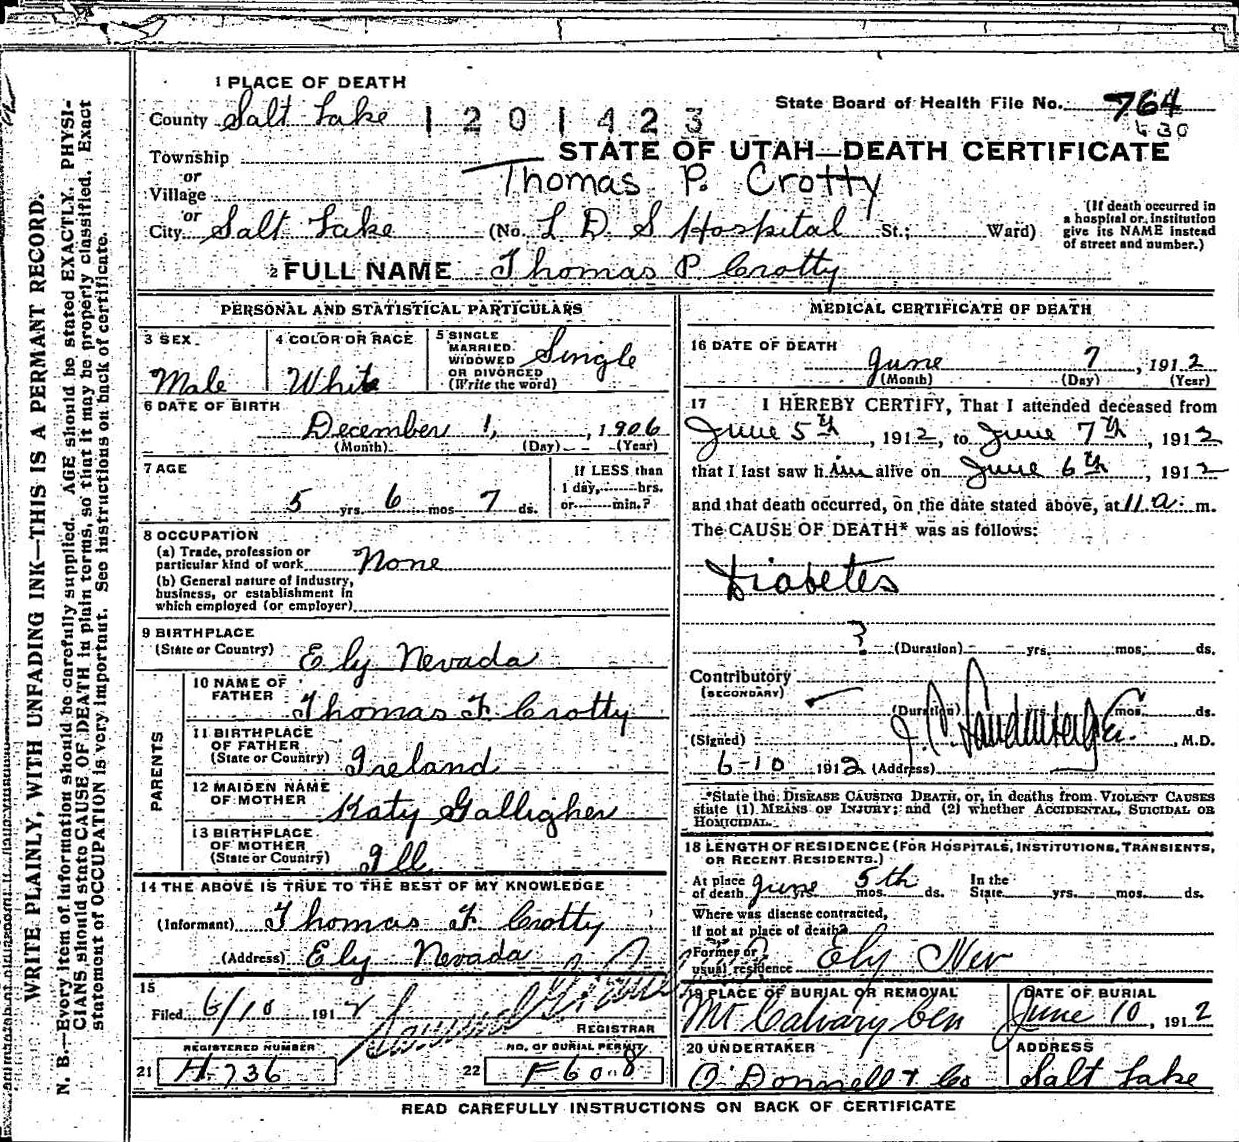 1 PLACE OF DEATH
County Salt Lake 1201423
State Board of Health File No. 764
430
STATE OF UTAH—DEATH CERTIFICATE
Township
or
Village
or
Thomas P. Crotty
City Salt Lake (No. L D S Hospital St.; Ward)
(If death occurred in
a hospital or institution
give its NAME instead
of street and number.)
2 FULL NAME Thomas P Crotty
PERSONAL AND STATISTICAL PARTICULARS
3 SEX
Male
4 COLOR OR RACE
White
5 SINGLE
MARRIED
WIDOWED
OR DIVORCED
(Write the word)
Single
6 DATE OF BIRTH
December 1, 1906
(Month) (Day) (Year)
7 AGE
5 yrs. 6 mos 7 ds.
If LESS than
1 day, hrs.
or min.?
8 OCCUPATION
(a) Trade, profession or
particular kind of work None
(b) General nature of industry,
business, or establishment in
which employed (or employer)
9 BIRTHPLACE
(State or Country) Ely Nevada
PARENTS
10 NAME OF
FATHER Thomas F. Crotty
11 BIRTHPLACE
OF FATHER
(State or Country) Ireland
12 MAIDEN NAME
OF MOTHER Katy Galligher
13 BIRTHPLACE
OF MOTHER
(State or Country) Ill
14 THE ABOVE IS TRUE TO THE BEST OF MY KNOWLEDGE
(Informant) Thomas F. Crotty
(Address) Ely Nevada
15
Filed 6/10 1912
REGISTRAR
REGISTERED NUMBER
21 H.736
NO. OF BURIAL PERMIT
22 F608
MEDICAL CERTIFICATE OF DEATH
16 DATE OF DEATH
June 7, 1912
(Month) (Day) (Year)
17 I HEREBY CERTIFY, That I attended deceased from
June 5th, 1912, to June 7th, 1912
that I last saw him alive on June 6th, 1912
and that death occurred, on the date stated above, at 11 a. m.
The CAUSE OF DEATH* was as follows:
Diabetes
? (Duration) yrs. mos. ds.
Contributory
(SECONDARY)
(Duration) yrs. mos. ds.
(Signed) , M.D.
6-10 1912 (Address)
*State the DISEASE CAUSING DEATH, or, in deaths from VIOLENT CAUSES
state (1) MEANS OF INJURY; and (2) whether ACCIDENTAL, SUICIDAL OR
HOMICIDAL.
18 LENGTH OF RESIDENCE (FOR HOSPITALS, INSTITUTIONS, TRANSIENTS,
OR RECENT RESIDENTS.)
At place
of death June 5th mos. ds.
In the
State yrs. mos. ds.
Where was disease contracted,
if not at place of death?
Former or
usual residence Ely Nev
19 PLACE OF BURIAL OR REMOVAL
Mt Calvary Cem
DATE OF BURIAL
June 10, 1912
20 UNDERTAKER
O'Donnell & Co
ADDRESS
Salt Lake
READ CAREFULLY INSTRUCTIONS ON BACK OF CERTIFICATE
WRITE PLAINLY, WITH UNFADING INK—THIS IS A PERMANT RECORD.
N. B.—Every item of information should be carefully supplied. AGE should be stated EXACTLY. PHYSI-
CIANS should state CAUSE OF DEATH in plain terms, so that it may be properly classified. Exact
statement of OCCUPATION is very important. See instructions on back of certificate.